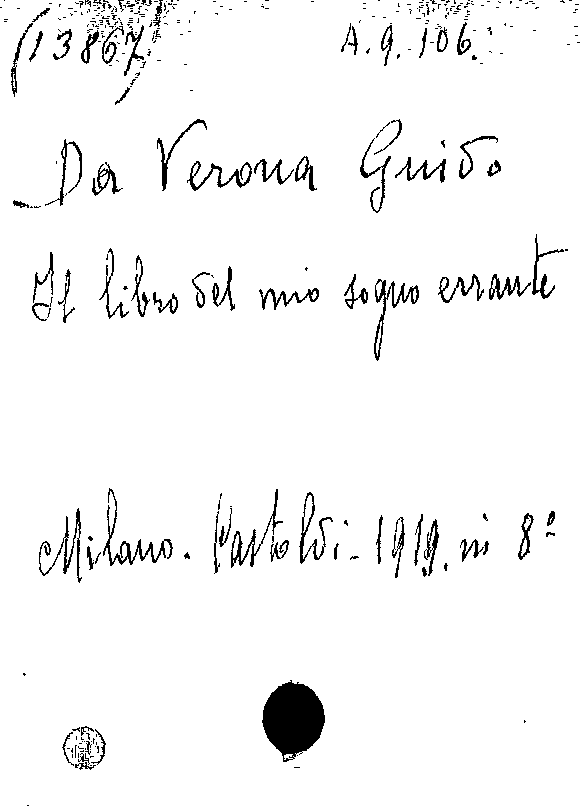 (13867) A.9.106.
Da Verona Guido
Il libro del mio sogno errante
Milano. Castoldi - 1919. in 8º